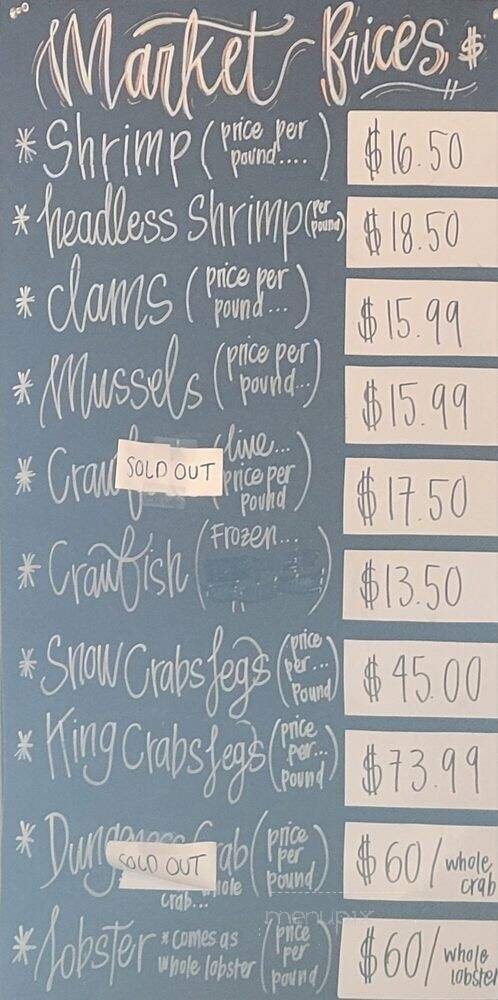 Market Prices $
* Shrimp (price per pound....) $16.50
* headless Shrimp (per pound) $18.50
* clams (price per pound...) $15.99
* Mussels (price per pound...) $15.99
* SOLD OUT (live... price per pound) $17.50
* Crawfish (Frozen...) $13.50
* Snow Crabs legs (price per... pound) $45.00
* King Crabs legs (price per... pound) $73.99
* SOLD OUT (price per pound) $60/whole crab
crab...
* lobster *comes as whole lobster (price per pound) $60/whole lobster
menupix